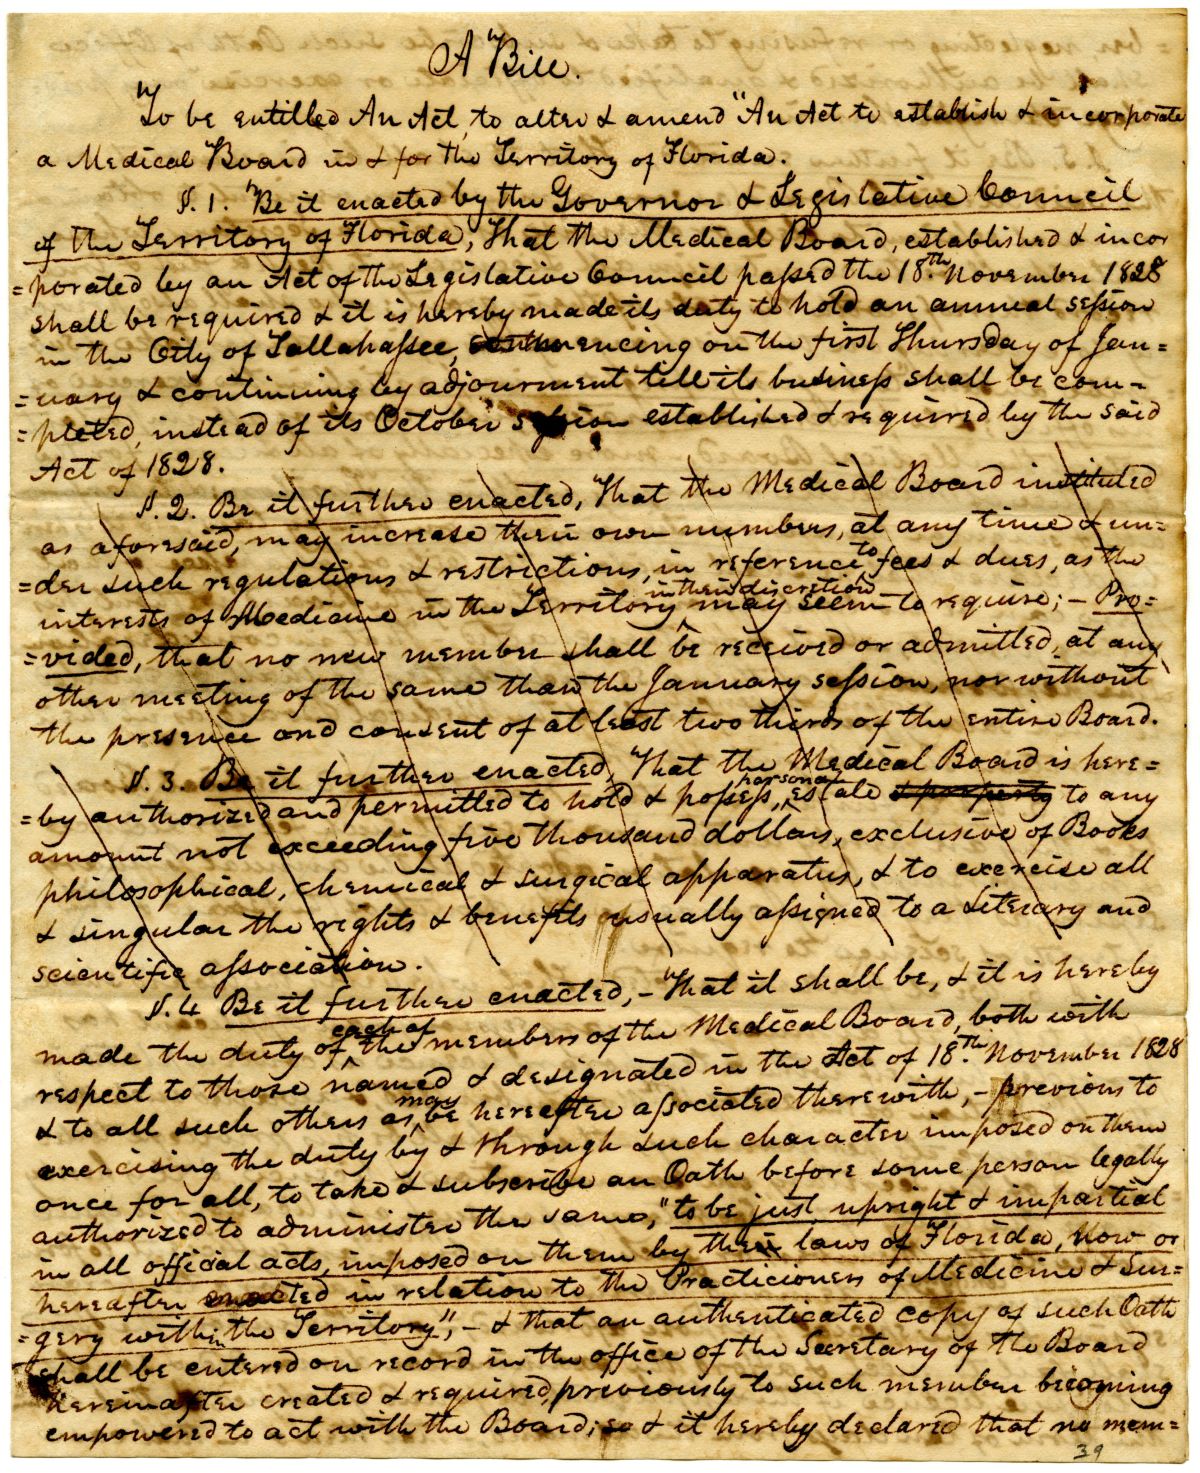 A Bill.
To be entitled An Act, to alter & amend "An Act to establish & incorporate
a Medical Board in & for the Territory of Florida.
S. 1. Be it enacted by the Governor & Legislative Council
of the Territory of Florida, That the Medical Board, established & incor
=porated by an Act of the Legislative Council passed the 18th. November 1828
shall be required & it is hereby made its duty to hold an annual session
in the City of Tallahassee, commencing on the first Thursday of Jan=
=uary & continuing by adjournment till its business shall be com=
=pleted, instead of its October session established & required by the said
Act of 1828.
S. 2. Be it further enacted, That the Medical Board instituted
as aforesaid, may increase their own numbers, at any time & un=
=der such regulations & restrictions, in reference to fees & dues, as the
interests of Medicine in the Territory may in their discretion seem to require; - Pro=
=vided, that no new member shall be received or admitted, at any
other meeting of the same than the January session, nor without
the presence and consent of at least two thirds of the entire Board.
S. 3 Be it further enacted, That the Medical Board is here=
=by authorized and permitted to hold & possess, personal estate & property to any
amount not exceeding five thousand dollars, exclusive of Books
philosophical, chemical & surgical apparatus, & to exercise all
& singular the rights & benefits usually assigned to a Literary and
scientific association.
S. 4 Be it further enacted, - That it shall be, & it is hereby
made the duty of each of the members of the Medical Board, both with
respect to those named & designated in the Act of 18th. November 1828
& to all such others as may be hereafter associated therewith, - previous to
exercising the duty by & through such character imposed on them
once for all, to take & subscribe an Oath before some person legally
authorized to administer the same, "to be just, upright & impartial
in all official acts, imposed on them by the laws of Florida, now or
hereafter enacted in relation to the Practicioners of Medicine & Sur=
=gery within the Territory", - & that an authenticated copy of such Oath
shall be entered on record in the office of the Secretary of the Board
hereinafter created & required, previously to such member becoming
empowered to act with the Board; so & it hereby declared that no mem=
39